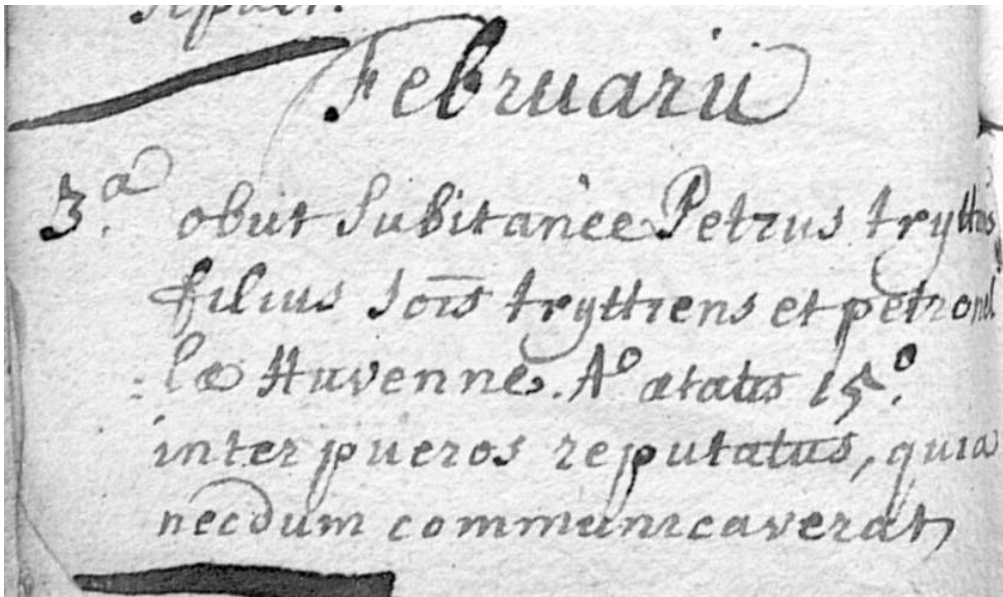 sepult.
Februarii
3.a obiit Subitanèe Petrus tryttiens
filius Jois tryttiens et petronel
læ Huvenne. Aº ætatis 15º.
inter pueros reputatus, quia
necdum communicaverat